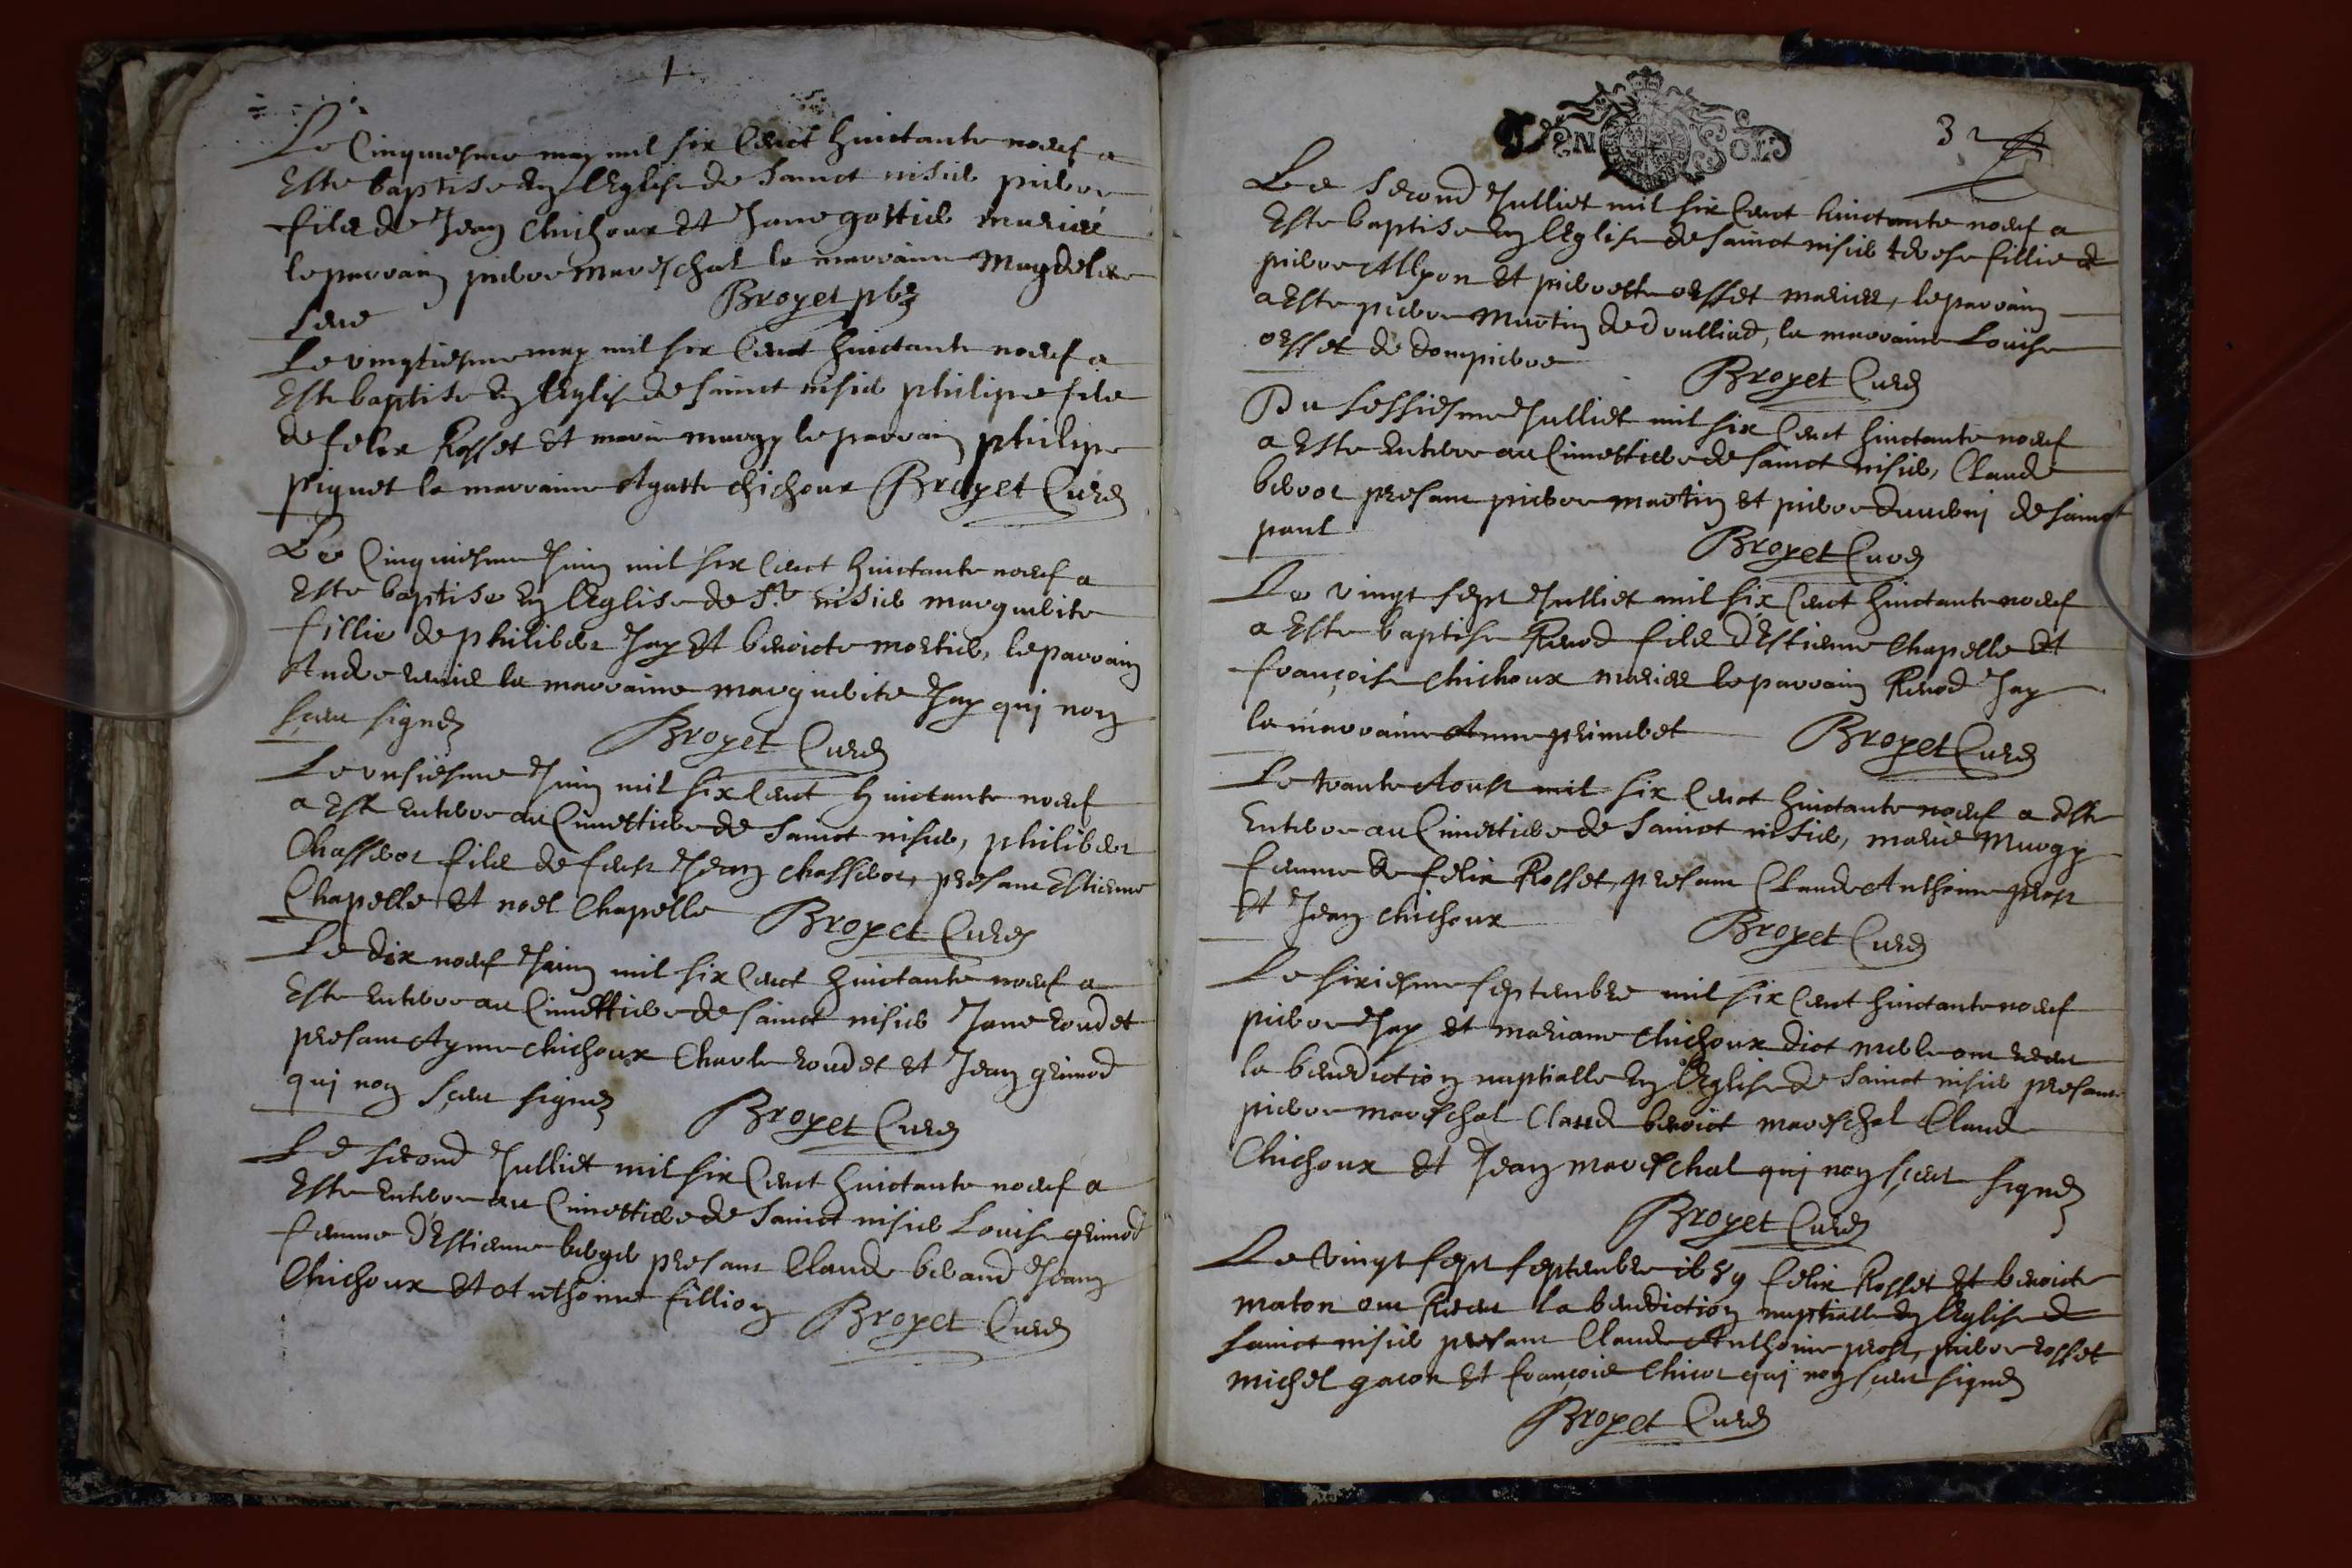 Le Cinquiesme may mil six Cent huictante noeuf a
Este baptise en l'Eglise de Sainct nisier pierre
fils de Jean Chichoux Et Jane gottier mariés
le parrain pierre mareschal la marraine Magdelene
Broyet pbr
Le vingtiesme may mil six Cent huictante noeuf a
Este baptise en l'Eglise de Sainct nisier philipe fils
de felix Rosset Et marie murgy le parrain philipe
piquet la marraine Agatte chichoux Broyet Curé
Le Cinquiesme Juin mil six Cent huictante noeuf a
Este baptise en l'Eglise de St nisier marguerite
fillie de philiber Jay Et benoicte mortier, le parrain
Andre la marraine marguerite Jay qui non
sceu signer Broyet Curé
Le onsiesme Juin mil six Cent huictante noeuf
a Este Enterre au Cimettiere de Sainct nisier, philiber
Chasseot fils de feust Jean chasseot, presant Estienne
Chapelle Et noel Chapelle Broyet Curé
Le dix noeuf Juin mil six Cent huictante noeuf a
Este enterre au Cimettiere de Sainct nisier Jane roudet
presant Ayme chichoux Charle roudet et Jean grimod
qui non sceu signer Broyet Curé
Le second Julliet mil six Cent huictante noeuf a
Este enterre au Cimettiere de Sainct nisier Louise grimod
femme d'Estienne berger presant Claude beraud Jean
Chichoux Et Anthoine fillion Broyet Curé
GEN SOLS
32
Le second Julliet mil six Cent huictante noeuf a
Este baptise en l'Eglise de sainct nisier terese fillie de
pierre Allyon et pierrette osset mariés, le parrain
a Este pierre Martin de Drulliad, la marraine Louise
osset de dompierre Broyet Curé
Du sessiesme Julliet mil six Cent huictante noeuf
a Este enterre au Cimettiere de sainct nisier, Claude
presant pierre martin et pierre de sainct
paul Broyet Curé
Le vingt sept Julliet mil six Cent huictante noeuf
a Este baptise Renod fils d'Estienne Chapelle Et
françoise chichoux mariés le parrain Renod Jay
la marraine Anne Broyet Curé
Le trante Aoust mil six Cent huictante noeuf a Este
Enterre au Cimettiere de Sainct nisier, marie Murgy
femme de felix Rosset, presant Claude Anthoine prost
Et Jean chichoux Broyet Curé
Le sixiesme septembre mil six Cent huictante noeuf
pierre Jay et mariane Chichoux dict merle ont receu
la benediction nuptialle en l'Eglise de Sainct nisier presant
pierre mareschal Claud benoict mareschal Claud
Chichoux Et Jean mareschal qui non sceu signer
Broyet Curé
Le vingt sept septembre 1689 felix Rosset Et benoicte
maton ont Receu la benediction nuptialle en l'Eglise de
Sainct nisier presant Claude Anthoine prost, pierre rosset
michel gacon Et françois Chicot qui non sceu signer
Broyet Curé